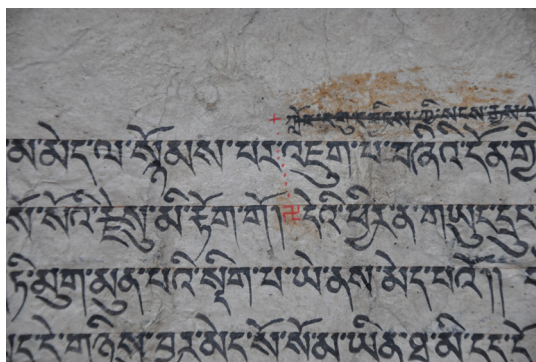 མ་མེད་ལ་སྙོམས་པར་འཇུག་པ་བཞིའི་དོན་གྱི
སོ་སོའི་རྗེསུ་མི་རྟོག་གོ། ࿖དེའི་ཕྱིར་ན་གཡུང་དྲུང་
ཏི་མུག་མུན་པའི་སྡིག་པ་ཡེ་ནས་མེད་པའོ།།
དང་དེ་གཉིས་བྱར་མེད་སོ་སོམ་ཡིན་ཐ་མི་དད་དོ